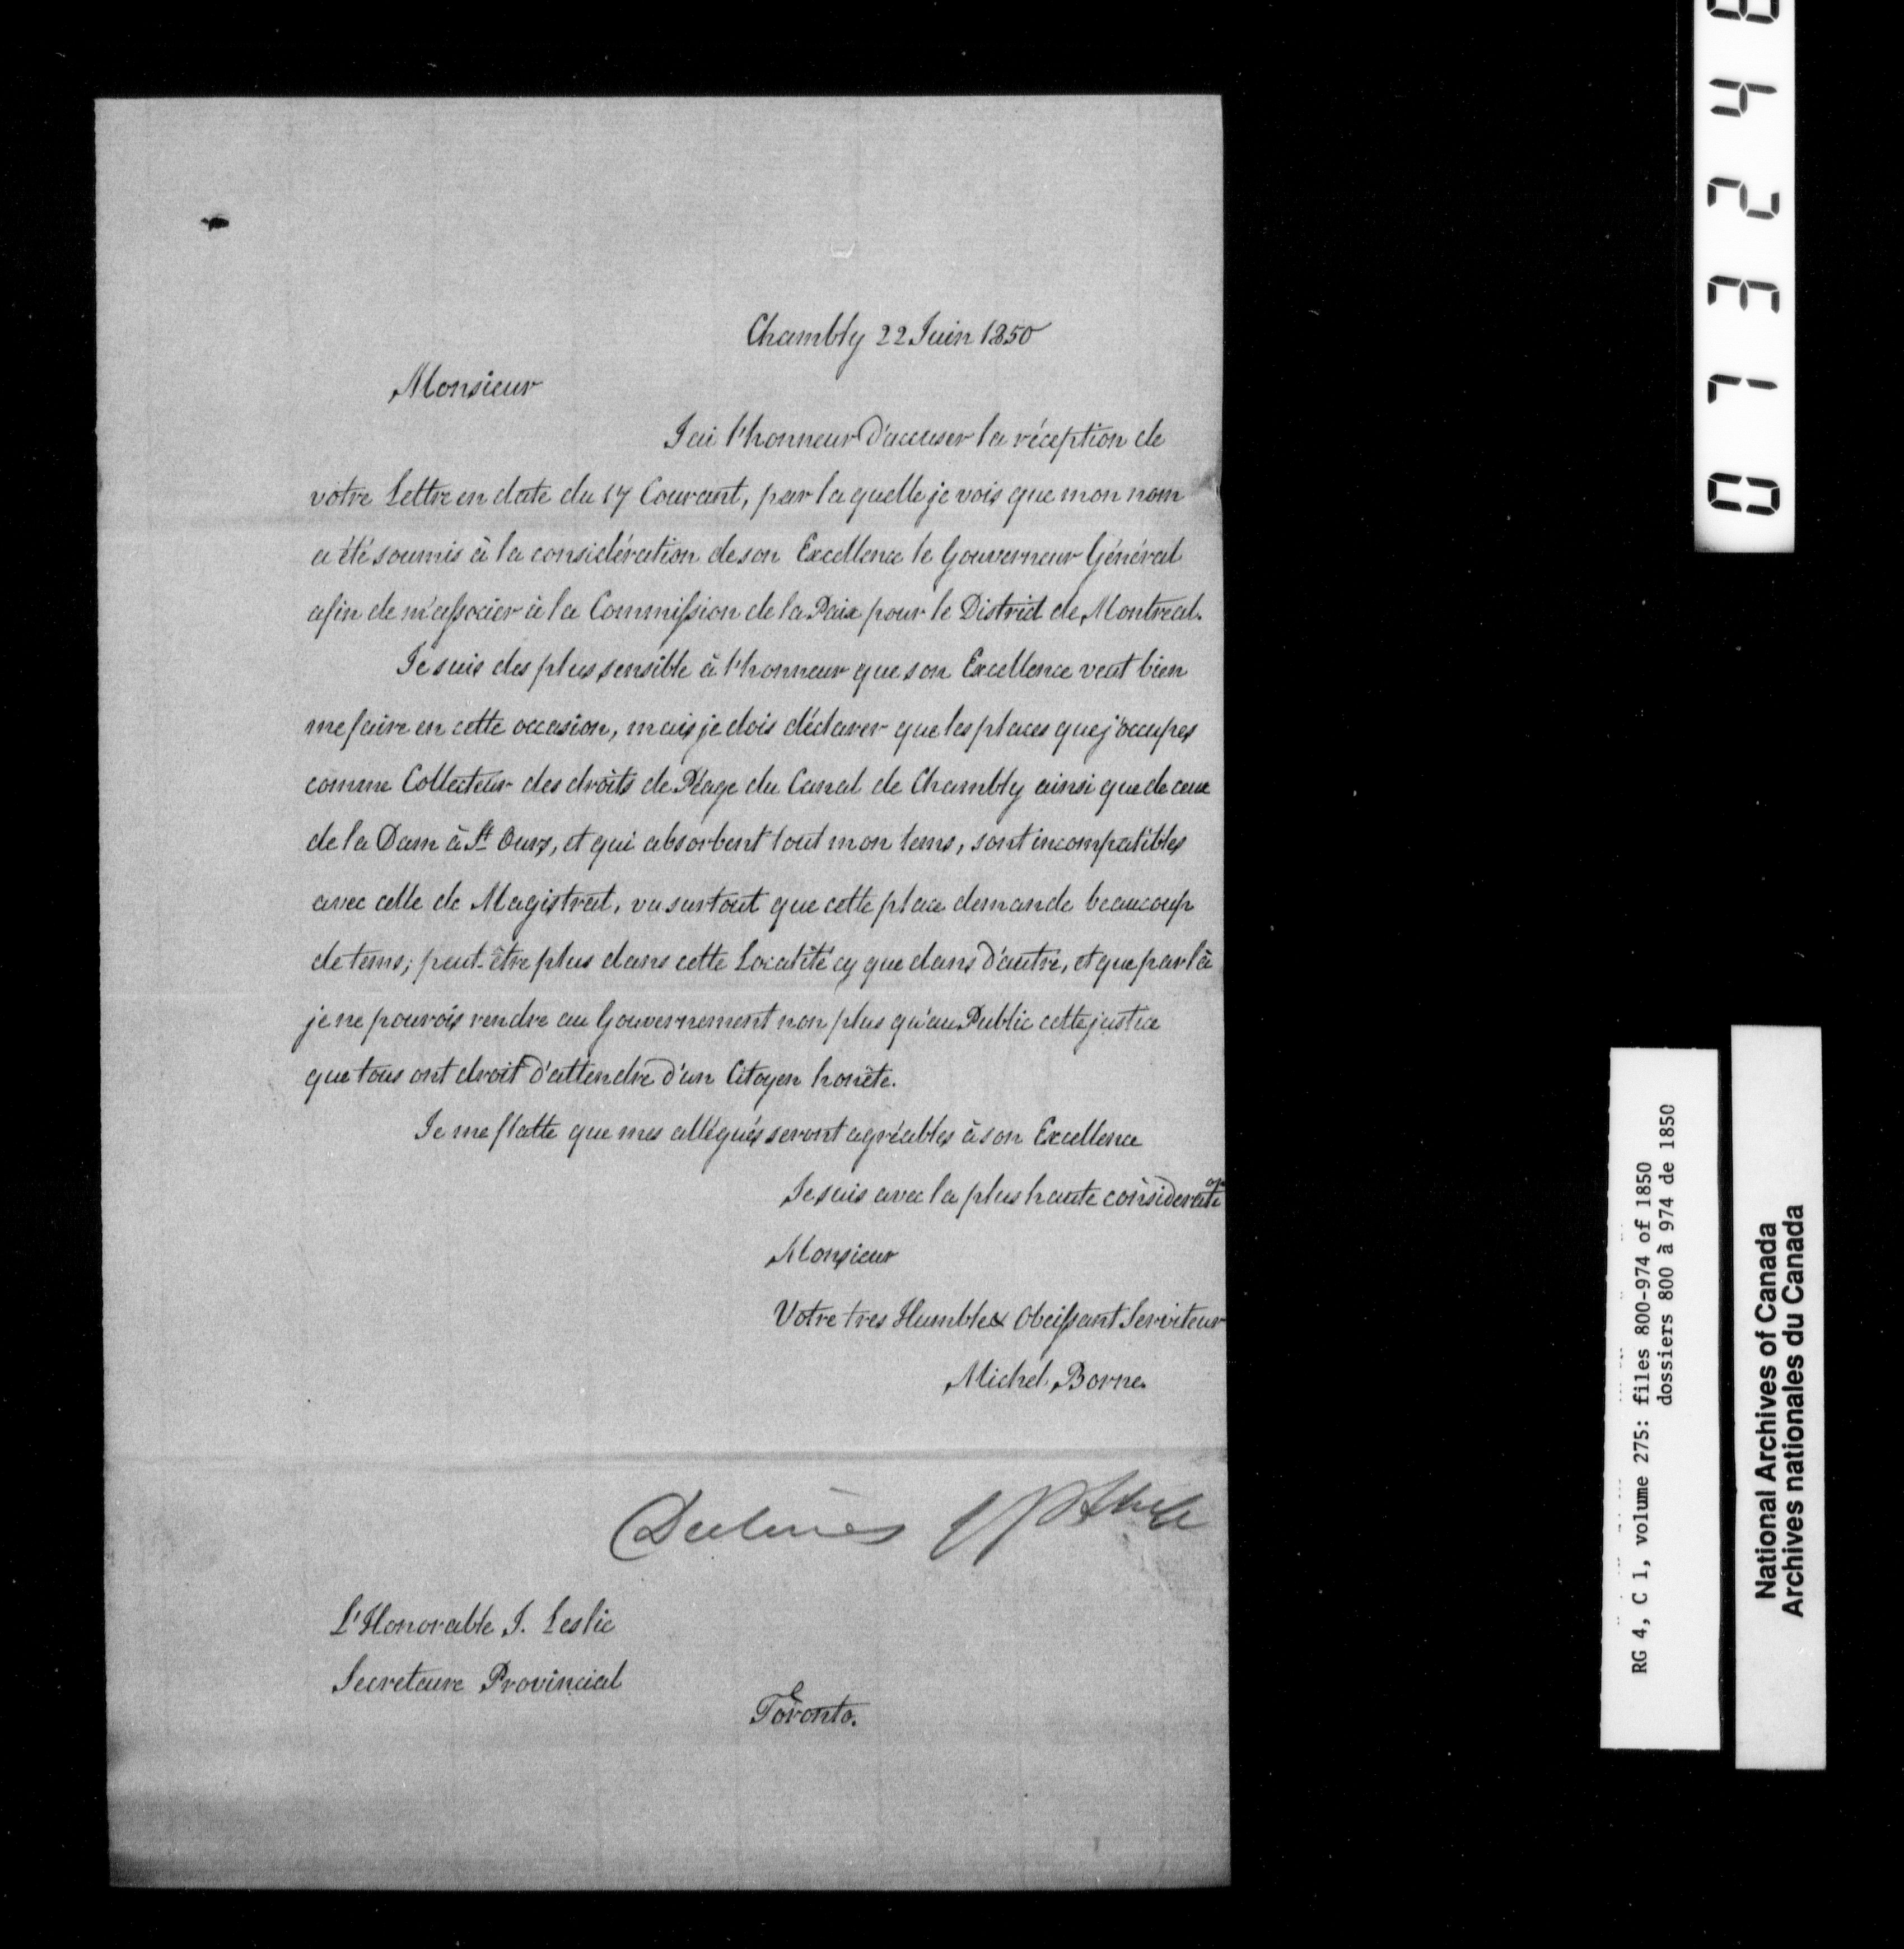 Chambly 22 Juin 1850
Monsieur
J'ai l'honneur d'accuser la réception de
votre Lettre en date du 17 Courant, par la quelle je vois que mon nom
a été soumis à la considération de son Excellence le Gouverneur Général
afin de m'associer à la Commission de la Paix pour le District de Montreal.
Je suis des plus sensible à l'honneur que son Excellence veut bien
me faire en cette occasion, mais je dois déclarer que les places que j'occupes
comme Collecteur des droits de Péage du Canal de Chambly ainsi que de ceux
de la Dam à St Ours, et qui absorbent tout mon tems, sont incompatibles
avec celle de Magistrat, vu surtout que cette place demande beaucoup
de tems; peut-être plus dans cette Localité cy que dans d'autre, et que par là
je ne pourois rendre au Gouvernement non plus qu'au Public cette justice
que tous ont droit d'attendre d'un Citoyen honête.
Je me flatte que mes allégués seront agréables à son Excellence
Je suis avec la plus haute considération
Monsieur
Votre tres Humble & Obeissant Serviteur
Michel Borne
Declines
L'Honorable J. Leslie
Secretaire Provincial
Toronto.
0 7 3 2 4 8
RG 4, C 1, volume 275: files 800-974 of 1850
dossiers 800 à 974 de 1850
National Archives of Canada
Archives nationales du Canada